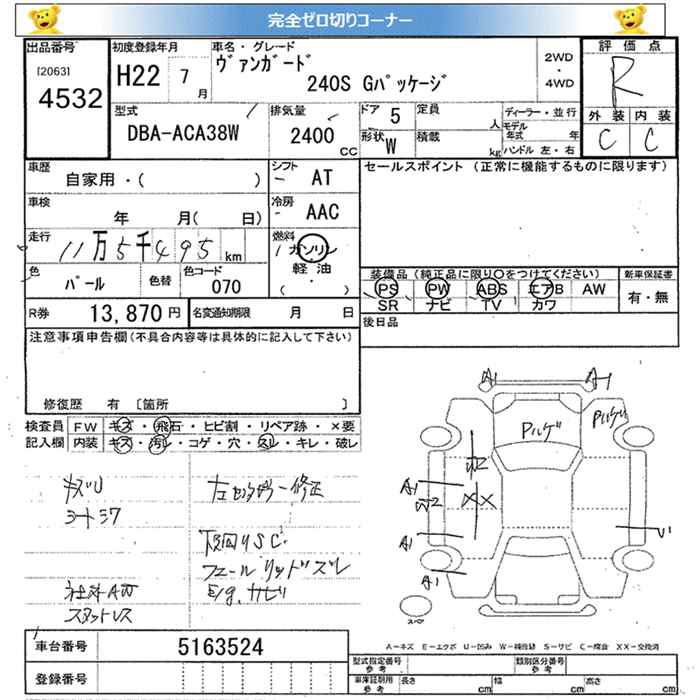 完全ゼロ切りコーナー
出品番号 初度登録年月 車名・グレード 2WD・4WD 評価点
[2063] 4532 H22 7月 ヴァンガード 240S Gパッケージ R
型式 排気量 ドア 5 定員 人 ディーラー・並行 外装 内装
DBA-ACA38W 2400 CC 形状 W 積載 kg モデル年式 年 C C
ハンドル 左・右
車歴 シフト セールスポイント (正常に機能するものに限ります)
自家用・( ) AT
車検 冷房
年 月( 日) AAC
走行 燃料
11万5千495 km ガソリン
色 色替 色コード 軽油
パール 070 (・)
装備品 (純正品に限り〇をつけてください) 新車保証書
PS PW ABS エアB AW 有・無
SR ナビ TV カワ
R券 13,870円 名変通知期限 月 日 後日品
注意事項申告欄(不具合内容等は具体的に記入して下さい)
修復歴 有 [箇所 ]
検査員 FW キズ・飛石・ヒビ割・リペア跡・×要
記入欄 内装 キズ・汚レ・コゲ・穴・スレ・キレ・破レ
A1 A1
Pルゲ Pルゲ
キズU
シートミワ
下回りSC
フェールリッドズレ
社外AW E/g.カビリ
スタットレス
A1 W2 W2 XX
A1 U1
A1
スペア
A－キズ E－エクボ U－凹み W－補修跡 S－サビ C－腐食 XX－交換済
車台番号 5163524
登録番号
型式指定番号 参考 類別区分番号 参考
車庫証明用 参考 長さ cm 幅 cm 高さ cm